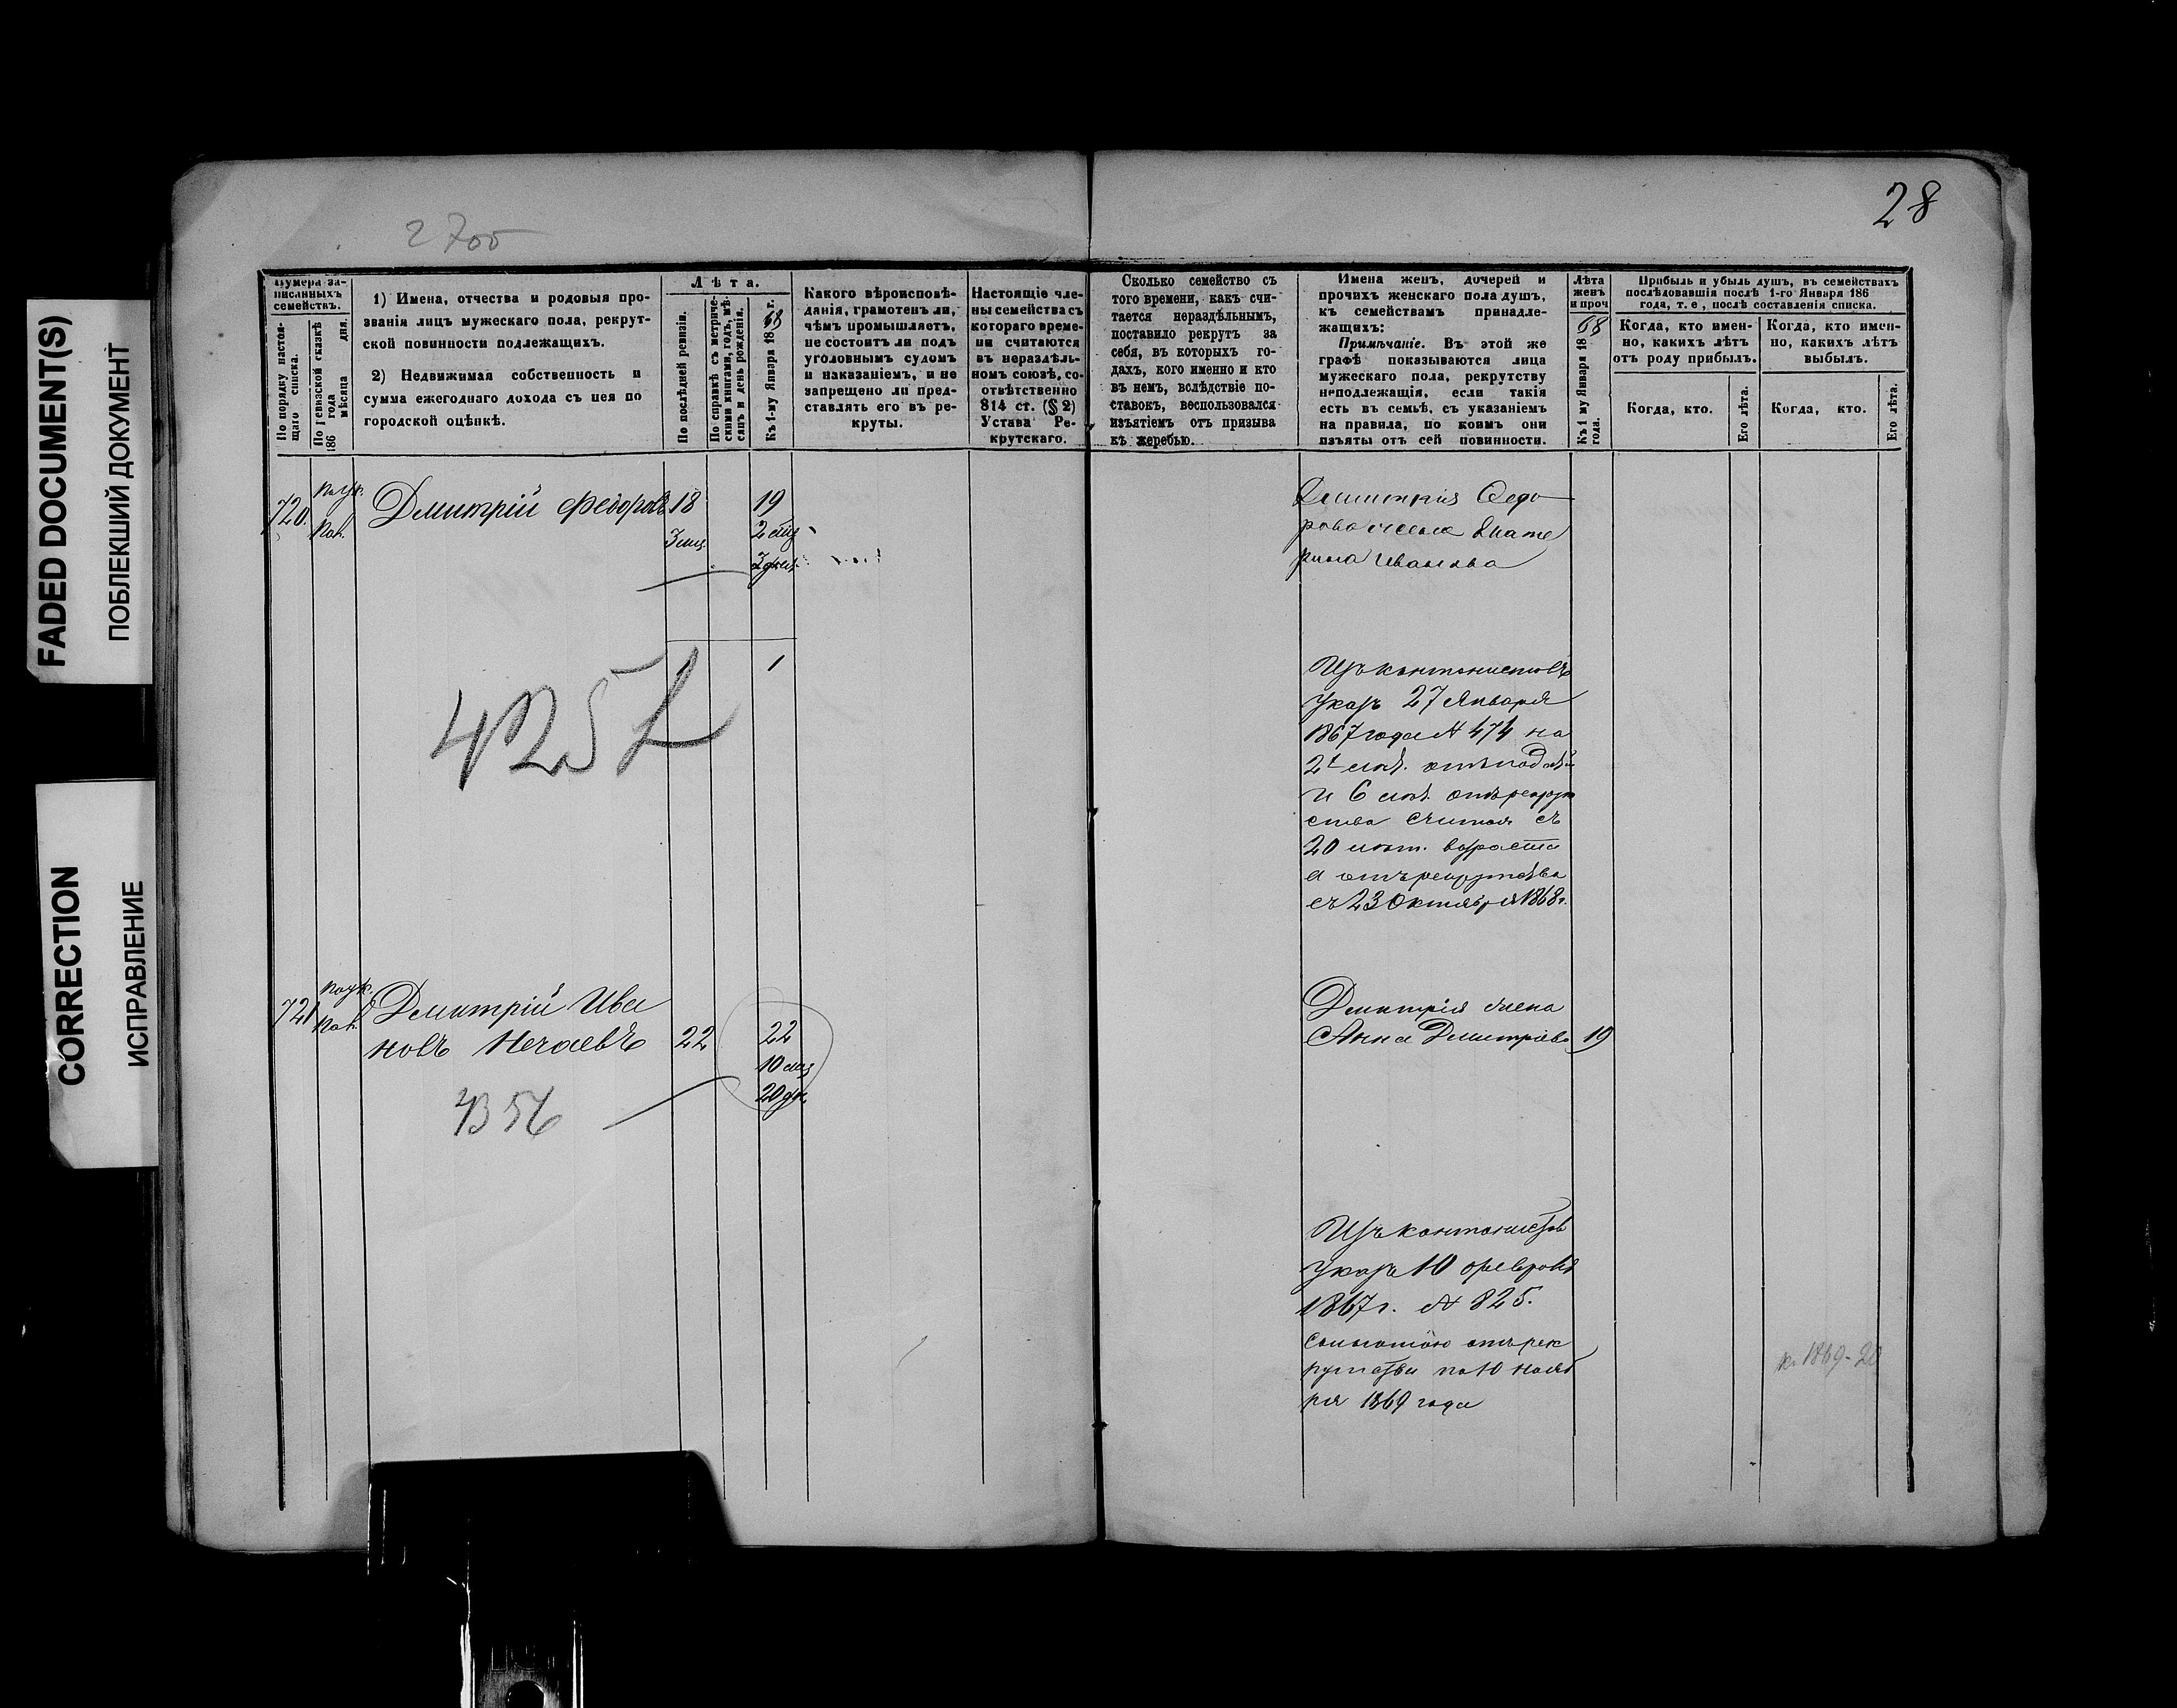 FADED DOCUMENT(S)
ПОБЛЕКШИЙ ДОКУМЕНТ
CORRECTION
ИСПРАВЛЕНИЕ
2700
28
Нумера за-
писанныхъ
семействъ.
По порядку настоя-
щаго списка.
По ревизской сказкѣ
186 года
мѣсяца дня.
1) Имена, отчества и родовыя про-
званія лицъ мужескаго пола, рекрут-
ской повинности подлежащихъ.
2) Недвижимая собственность и
сумма ежегоднаго дохода съ нея по
городской оцѣнкѣ.
Лѣта.
По послѣдней ревизіи.
По справкѣ съ метриче-
скими книгами, годъ, мѣ-
сяцъ и день рожденія.
Къ 1-му Января 1868 г.
Какого вѣроисповѣ-
данія, грамотенъ ли,
чѣмъ промышляетъ,
не состоитъ ли подъ
уголовнымъ судомъ
и наказаніемъ, и не
запрещено ли пред-
ставлять его въ ре-
круты.
Настоящіе чле-
ны семейства съ
котораго време-
ни считаются
въ нераздѣль-
номъ союзѣ, со-
отвѣтственно
814 ст. (§ 2)
Устава Ре-
крутскаго.
Сколько семейство съ
того времени, какъ счи-
тается нераздѣльнымъ,
поставило рекрутъ за
себя, въ которыхъ го-
дахъ, кого именно и кто
въ немъ, вслѣдствіе по-
ставокъ, воспользовался
изъятіемъ отъ призыва
къ жеребью.
Имена женъ, дочерей и
прочихъ женскаго пола душъ,
къ семействамъ принадле-
жащихъ:
Примѣчаніе. Въ этой же
графѣ показываются лица
мужескаго пола, рекрутству
неподлежащія, если такія
есть въ семьѣ, съ указаніемъ
на правила, по коимъ они
изъяты отъ сей повинности.
Лѣта
женъ
и проч
Къ 1 му Января 1868
года.
Прибыль и убыль душъ, въ семействахъ
послѣдовавшія послѣ 1-го Января 186
года, т. е , послѣ составленія списка.
Когда, кто имен-
но, какихъ лѣтъ
отъ роду прибылъ.
Когда, кто имен-
но, какихъ лѣтъ
выбылъ.
Когда, кто.
Его лѣта.
Когда, кто.
Его лѣта.
720.
Дмитрій Федоровъ 18 19
3 мѣс. 2 мѣс
3 дня.
Дмитрія Федо
рова жена Екате
рина Иванова
1 1
425
Изъ кантонистовъ
указъ 27 Января
1867 года № 474 на
и 6 лѣт. отъ рекрут
ства считая съ
20 лѣт. возраста
а отъ рекрутства
съ 23 Октября 1868 г.
721
Дмитрій Ива
новъ Нечаевъ 22 22
10 мѣс
20 дн.
4356
Дмитрія жена
Анна Дмитріева 19
Изъ кантонистовъ
указъ 10 февраля
1867 г. № 825.
съ льготою отъ рек
рутства по 10 нояб
ря 1869 года
1869-20